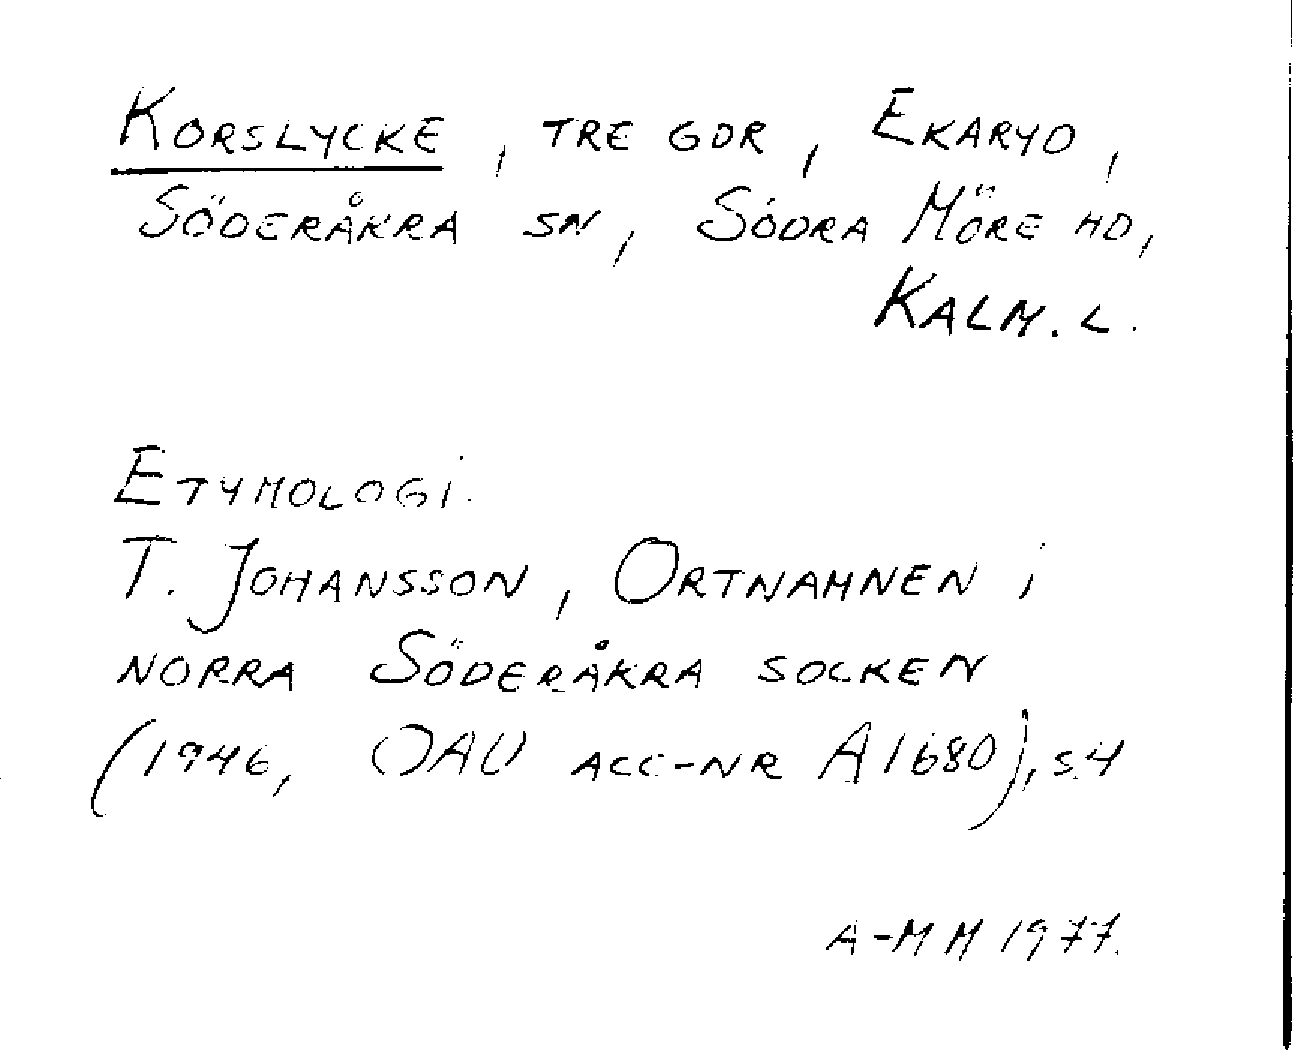 KORSLYCKE, TRE GDR, EKARYD,
SÖDERÅKRA SN, SÖDRA MÖRE HD,
KALM. L.
ETYMOLOGI.
T. JOHANSSON, ORTNAMNEN i
NORRA SÖDERÅKRA SOCKEN
(1946, OAU ACC-NR A1680), s 4
A-MM 1977.